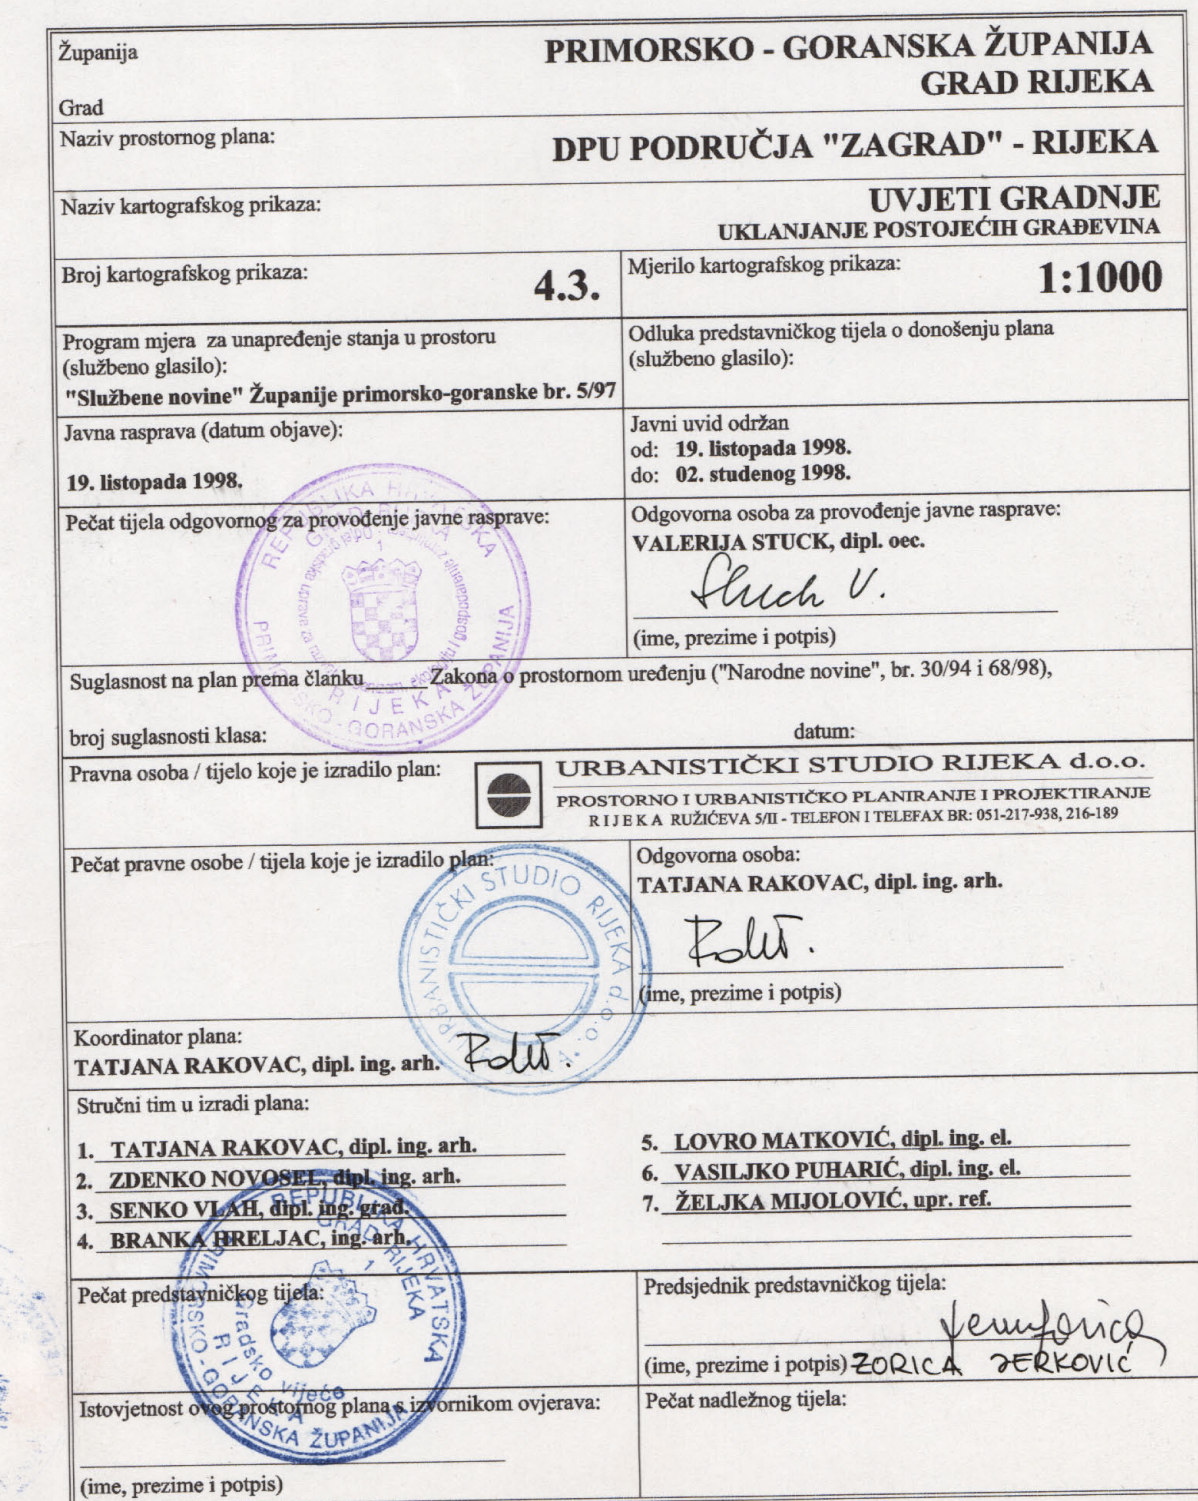 Županija
PRIMORSKO - GORANSKA ŽUPANIJA
GRAD RIJEKA
Grad
Naziv prostornog plana:
DPU PODRUČJA "ZAGRAD" - RIJEKA
Naziv kartografskog prikaza:
UVJETI GRADNJE
UKLANJANJE POSTOJEĆIH GRAĐEVINA
Broj kartografskog prikaza:
4.3.
Mjerilo kartografskog prikaza:
1:1000
Program mjera za unapređenje stanja u prostoru
(službeno glasilo):
"Službene novine" Županije primorsko-goranske br. 5/97
Odluka predstavničkog tijela o donošenju plana
(službeno glasilo):
Javna rasprava (datum objave):
19. listopada 1998.
Javni uvid održan
od: 19. listopada 1998.
do: 02. studenog 1998.
Pečat tijela odgovornog za provođenje javne rasprave:
REPUBLIKA HRVATSKA
PRIMORSKO-GORANSKA ŽUPANIJA
GRAD RIJEKA
1
RIJEKA
Odgovorna osoba za provođenje javne rasprave:
VALERIJA STUCK, dipl. oec.
Stuck V.
(ime, prezime i potpis)
Suglasnost na plan prema članku _____ Zakona o prostornom uređenju ("Narodne novine", br. 30/94 i 68/98),
broj suglasnosti klasa:
datum:
Pravna osoba / tijelo koje je izradilo plan:
URBANISTIČKI STUDIO RIJEKA d.o.o.
PROSTORNO I URBANISTIČKO PLANIRANJE I PROJEKTIRANJE
RIJEKA RUŽIĆEVA 5/II - TELEFON I TELEFAX BR: 051-217-938, 216-189
Pečat pravne osobe / tijela koje je izradilo plan:
URBANISTIČKI STUDIO RIJEKA d.o.o.
Odgovorna osoba:
TATJANA RAKOVAC, dipl. ing. arh.
(ime, prezime i potpis)
Koordinator plana:
TATJANA RAKOVAC, dipl. ing. arh.
Stručni tim u izradi plana:
1. TATJANA RAKOVAC, dipl. ing. arh.
2. ZDENKO NOVOSEL, dipl. ing. arh.
3. SENKO VLAH, dipl. ing. građ.
4. BRANKA HRELJAC, ing. arh.
5. LOVRO MATKOVIĆ, dipl. ing. el.
6. VASILJKO PUHARIĆ, dipl. ing. el.
7. ŽELJKA MIJOLOVIĆ, upr. ref.
Pečat predstavničkog tijela:
REPUBLIKA HRVATSKA
PRIMORSKO-GORANSKA ŽUPANIJA
GRAD RIJEKA
1
Gradsko vijeće
RIJEKA
Predsjednik predstavničkog tijela:
(ime, prezime i potpis) ZORICA JERKOVIĆ
Istovjetnost ovog prostornog plana s izvornikom ovjerava:
(ime, prezime i potpis)
Pečat nadležnog tijela: